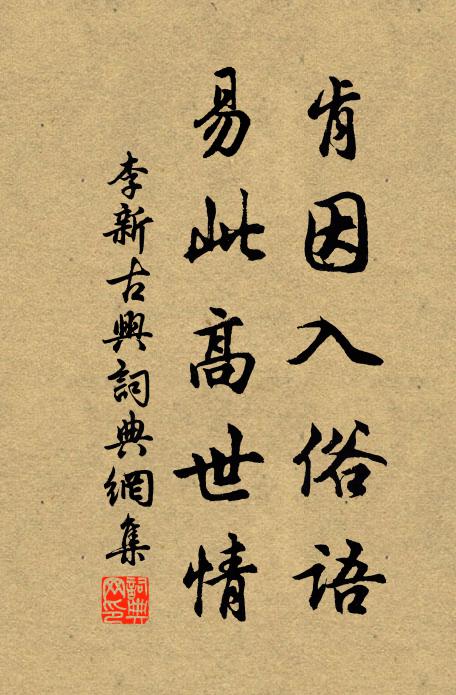 肯因入俗語
易此高世情
李新古興詞典網集
詞典
网印